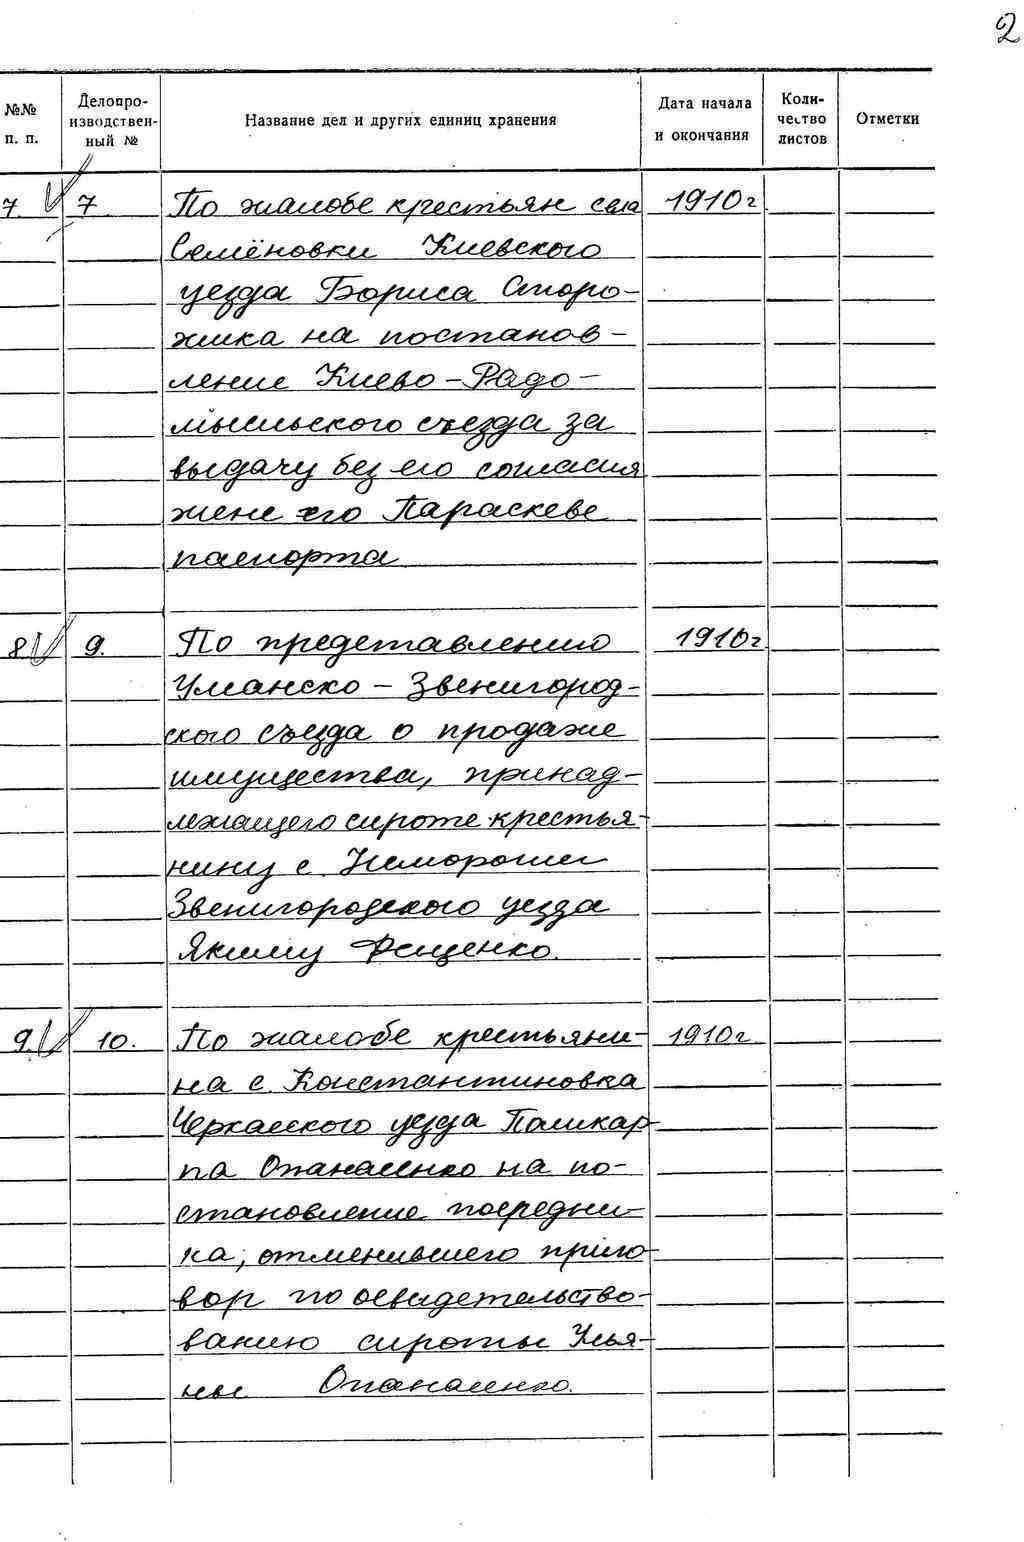 2
№№ п. п.
Делопро-
изводствен-
ный №
Название дел и других единиц хранения
Дата начала
и окончания
Коли-
чество
листов
Отметки
7. 7. По жалобе крестьян села 1910 г.
Семёновки Киевского
уезда Бориса Сторо-
жика на постанов-
ление Киево-Радо-
мысльского съезда за
выдачу без его согласия
жене его Параскеве
паспорта
8 9. По представлению 1910 г.
Уманско-Звенигород-
ского съезда о продаже
имущества, принад-
лежащего сироте крестья-
нину с. Неморожи
Звенигородского уезда
Якиму Фещенко.
9. 10. По жалобе крестьяни- 1910 г.
на с. Константиновка
Черкасского уезда Поликар-
па Опанасенко на по-
становление посредни-
ка, отменившего приго-
вор по освидетельство-
ванию сироты Улья-
ны Опанасенко.